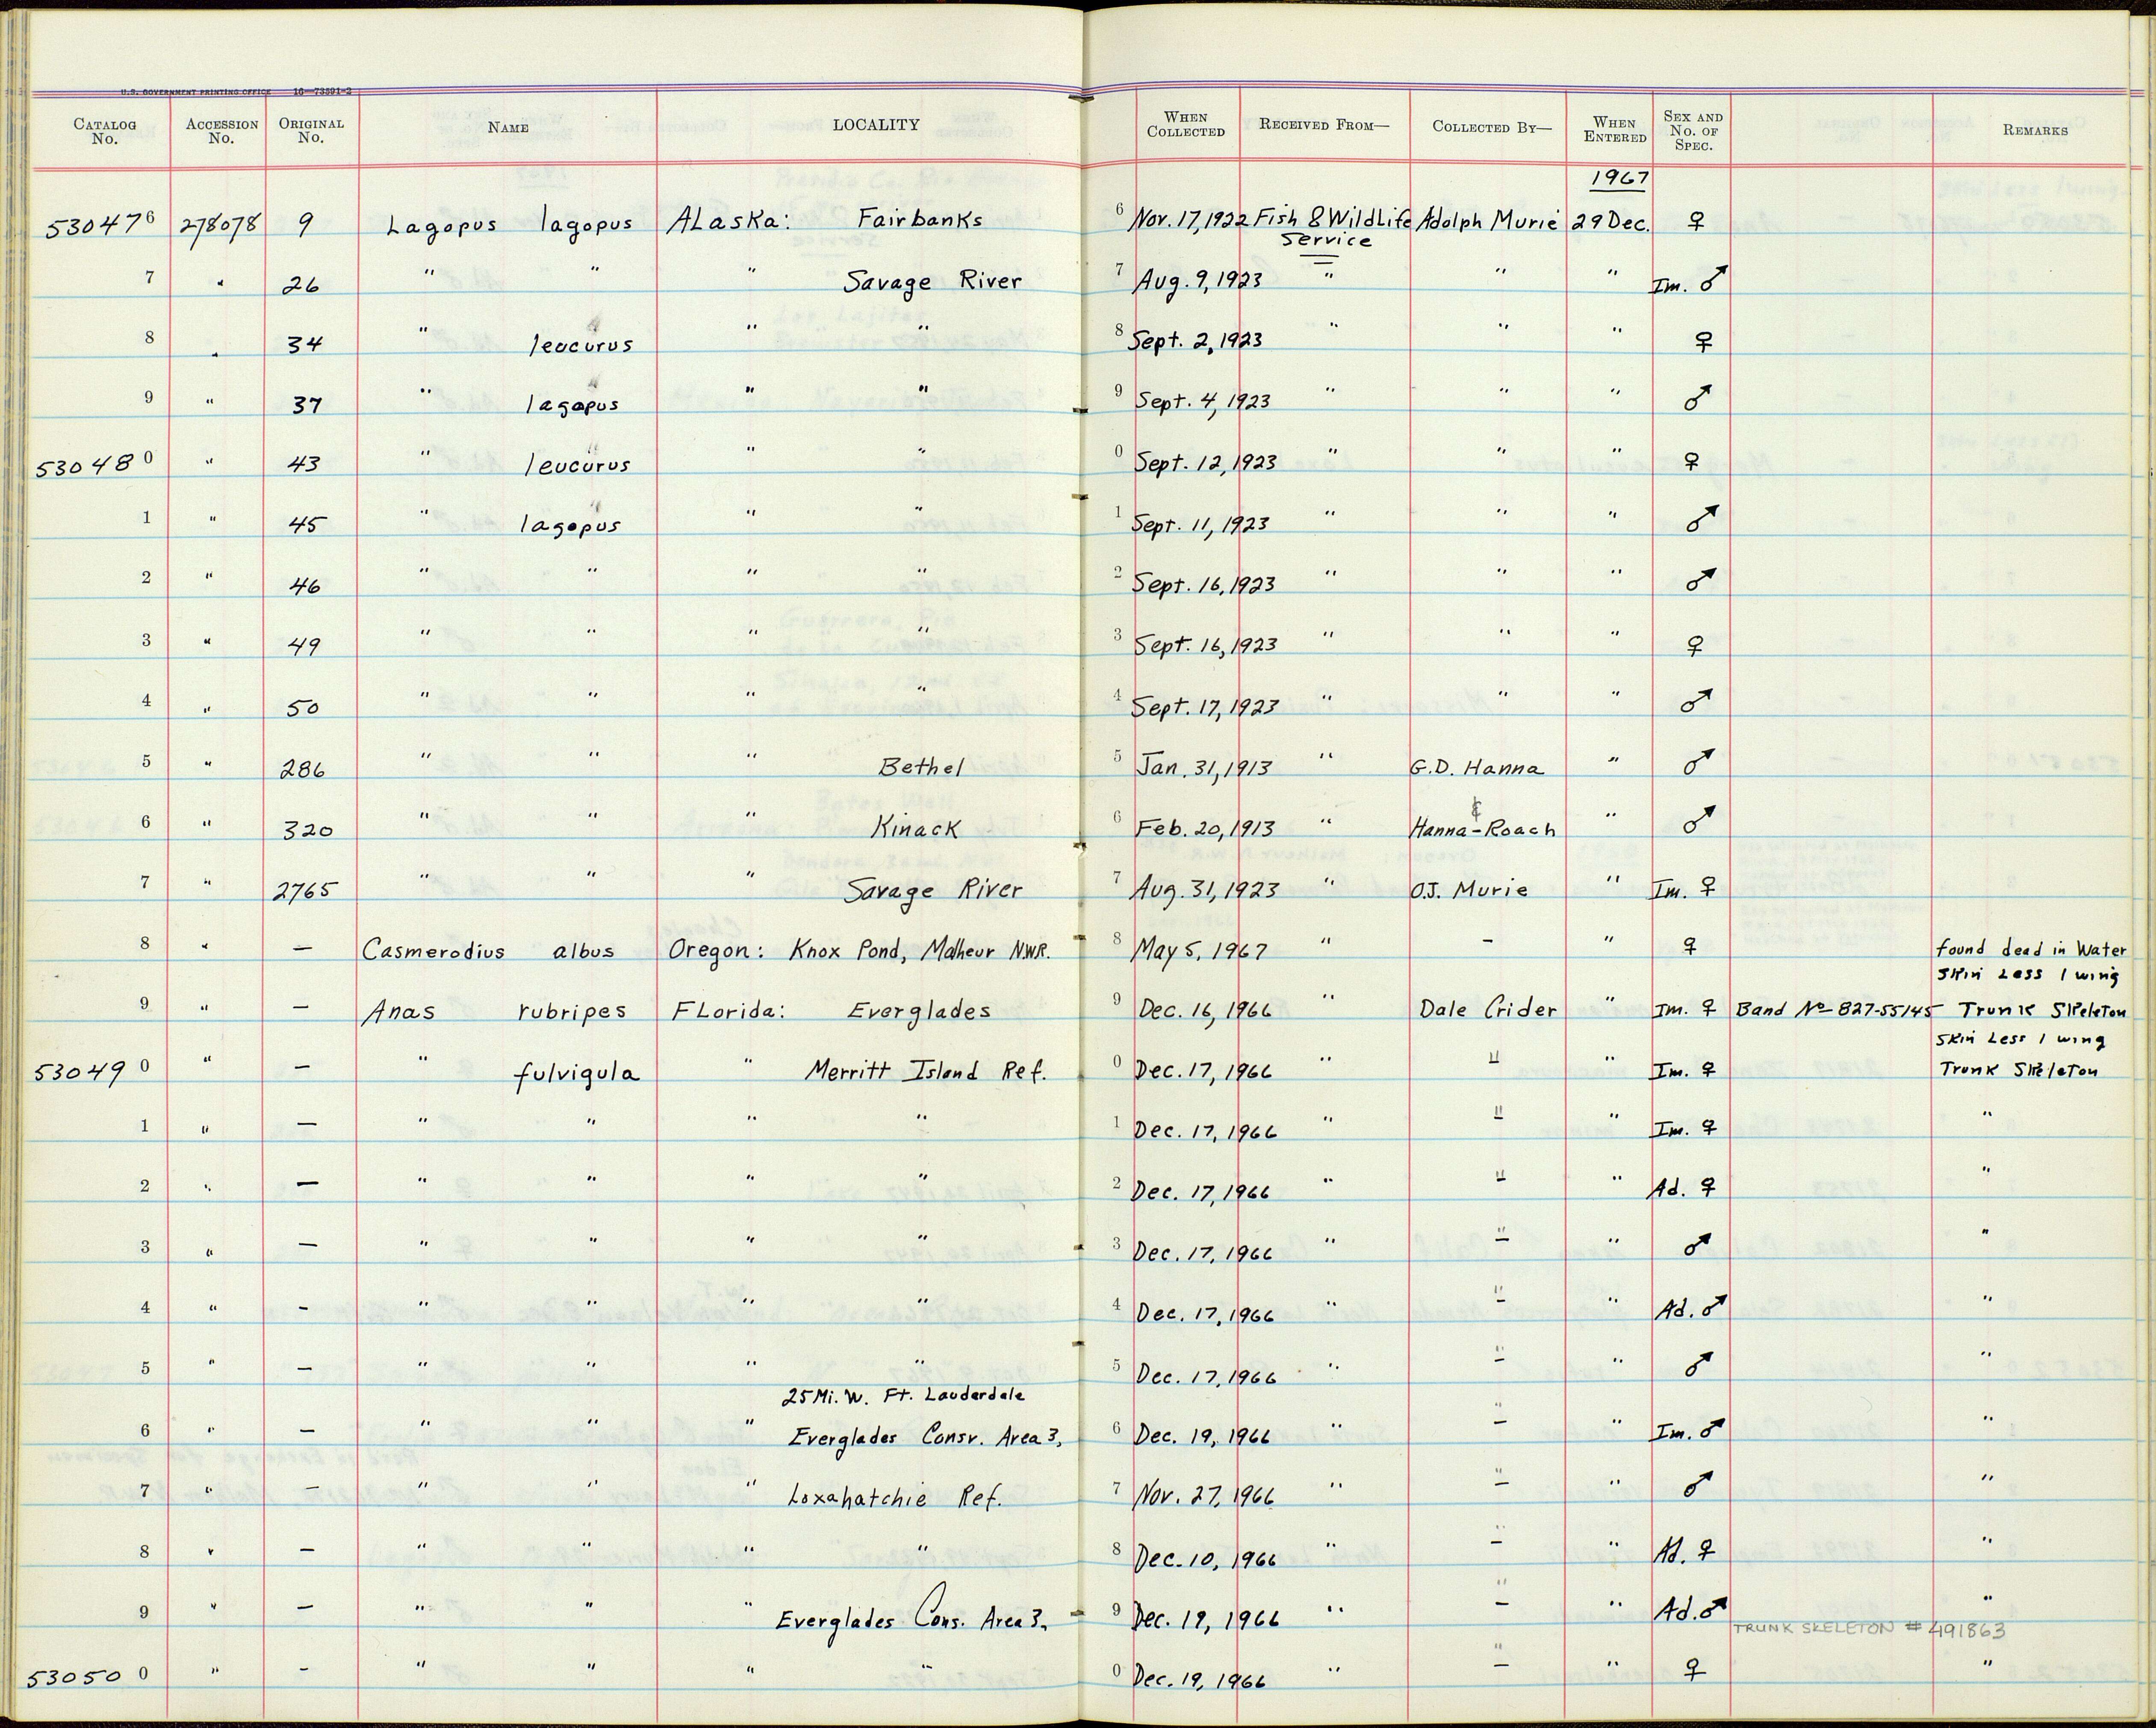 U.S. GOVERNMENT PRINTING OFFICE 16—73591-2
CATALOG No. ACCESSION No. ORIGINAL No. NAME LOCALITY WHEN COLLECTED RECEIVED FROM— COLLECTED BY— WHEN ENTERED SEX AND No. OF SPEC. REMARKS
1967
530476 278078 9 Lagopus lagopus ALaska: Fairbanks 6 Nov. 17, 1922 Fish & WildLife Service Adolph Murie 29 Dec. ♀
7 " 26 " " " Savage River 7 Aug. 9, 1923 " " " Im. ♂
8 " 34 " leucurus " " 8 Sept. 2, 1923 " " " ♀
9 " 37 " lagopus " " 9 Sept. 4, 1923 " " " ♂
530480 " 43 " leucurus " " 0 Sept. 12, 1923 " " " ♀
1 " 45 " lagopus " " 1 Sept. 11, 1923 " " " ♂
2 " 46 " " " " 2 Sept. 16, 1923 " " " ♂
3 " 49 " " " " 3 Sept. 16, 1923 " " " ♀
4 " 50 " " " " 4 Sept. 17, 1923 " " " ♂
5 " 286 " " " Bethel 5 Jan. 31, 1913 " G.D. Hanna " ♂
6 " 320 " " " Kinack 6 Feb. 20, 1913 " Hanna-&Roach " ♂
7 " 2765 " " " Savage River 7 Aug. 31, 1923 " O.J. Murie " Im. ♀
8 " — Casmerodius albus Oregon: Knox Pond, Malheur N.W.R. 8 May 5, 1967 " - " ♀ found dead in Water
Skin Less 1 wing
9 " — Anas rubripes FLorida: Everglades 9 Dec. 16, 1966 " Dale Crider " Im. ♀ Band No 827-55145 Trunk Skeleton
Skin Less 1 wing
530490 " — " fulvigula " Merritt Island Ref. 0 Dec. 17, 1966 " " " Im. ♀ Trunk Skeleton
1 " — " " " " 1 Dec. 17, 1966 " " " Im. ♀ "
2 " — " " " " 2 Dec. 17, 1966 " " " Ad. ♀ "
3 " — " " " " 3 Dec. 17, 1966 " " " ♂ "
4 " — " " " " 4 Dec. 17, 1966 " " " Ad. ♂ "
5 " — " " " " 5 Dec. 17, 1966 " " " ♂ "
25 Mi. W. Ft. Lauderdale
6 " — " " " Everglades Consv. Area 3. 6 Dec. 19, 1966 " " " Im. ♂ "
7 " — " " " Loxahatchie Ref. 7 Nov. 27, 1966 " " " ♂ "
8 " — " " " " 8 Dec. 10, 1966 " " " Ad. ♀ "
9 " — " " " Everglades Cons. Area 3. 9 Dec. 19, 1966 " " " Ad. ♂ "
TRUNK SKELETON # 491863
530500 " — " " " " 0 Dec. 19, 1966 " " ♀ "